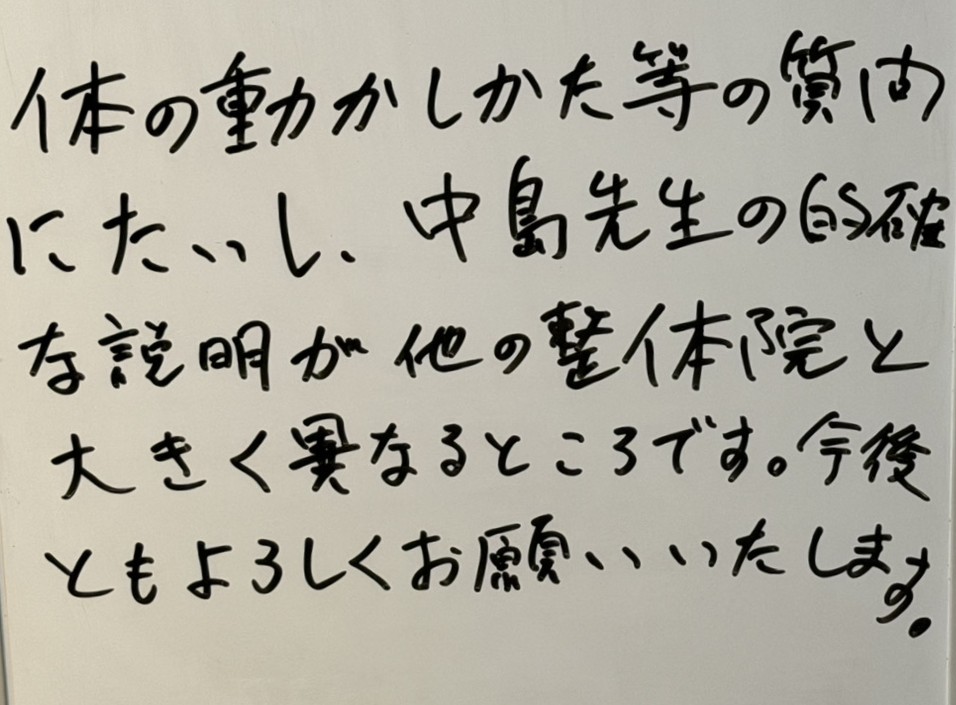 体の動かしかた等の質問
にたいし、中島先生の的確
な説明が他の整体院と
大きく異なるところです。今後
ともよろしくお願いいたします。